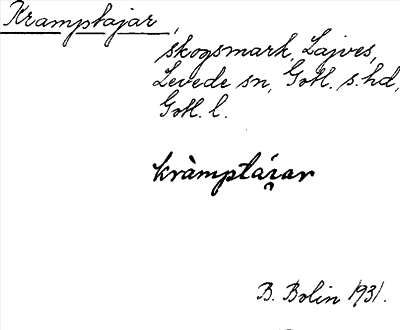 Kramptajar,
skogsmark, Lajves,
Levede sn, Gotl. s. hd,
Gotl. l.
kràmptá𝑖̯ar
B. Bolin 1931.